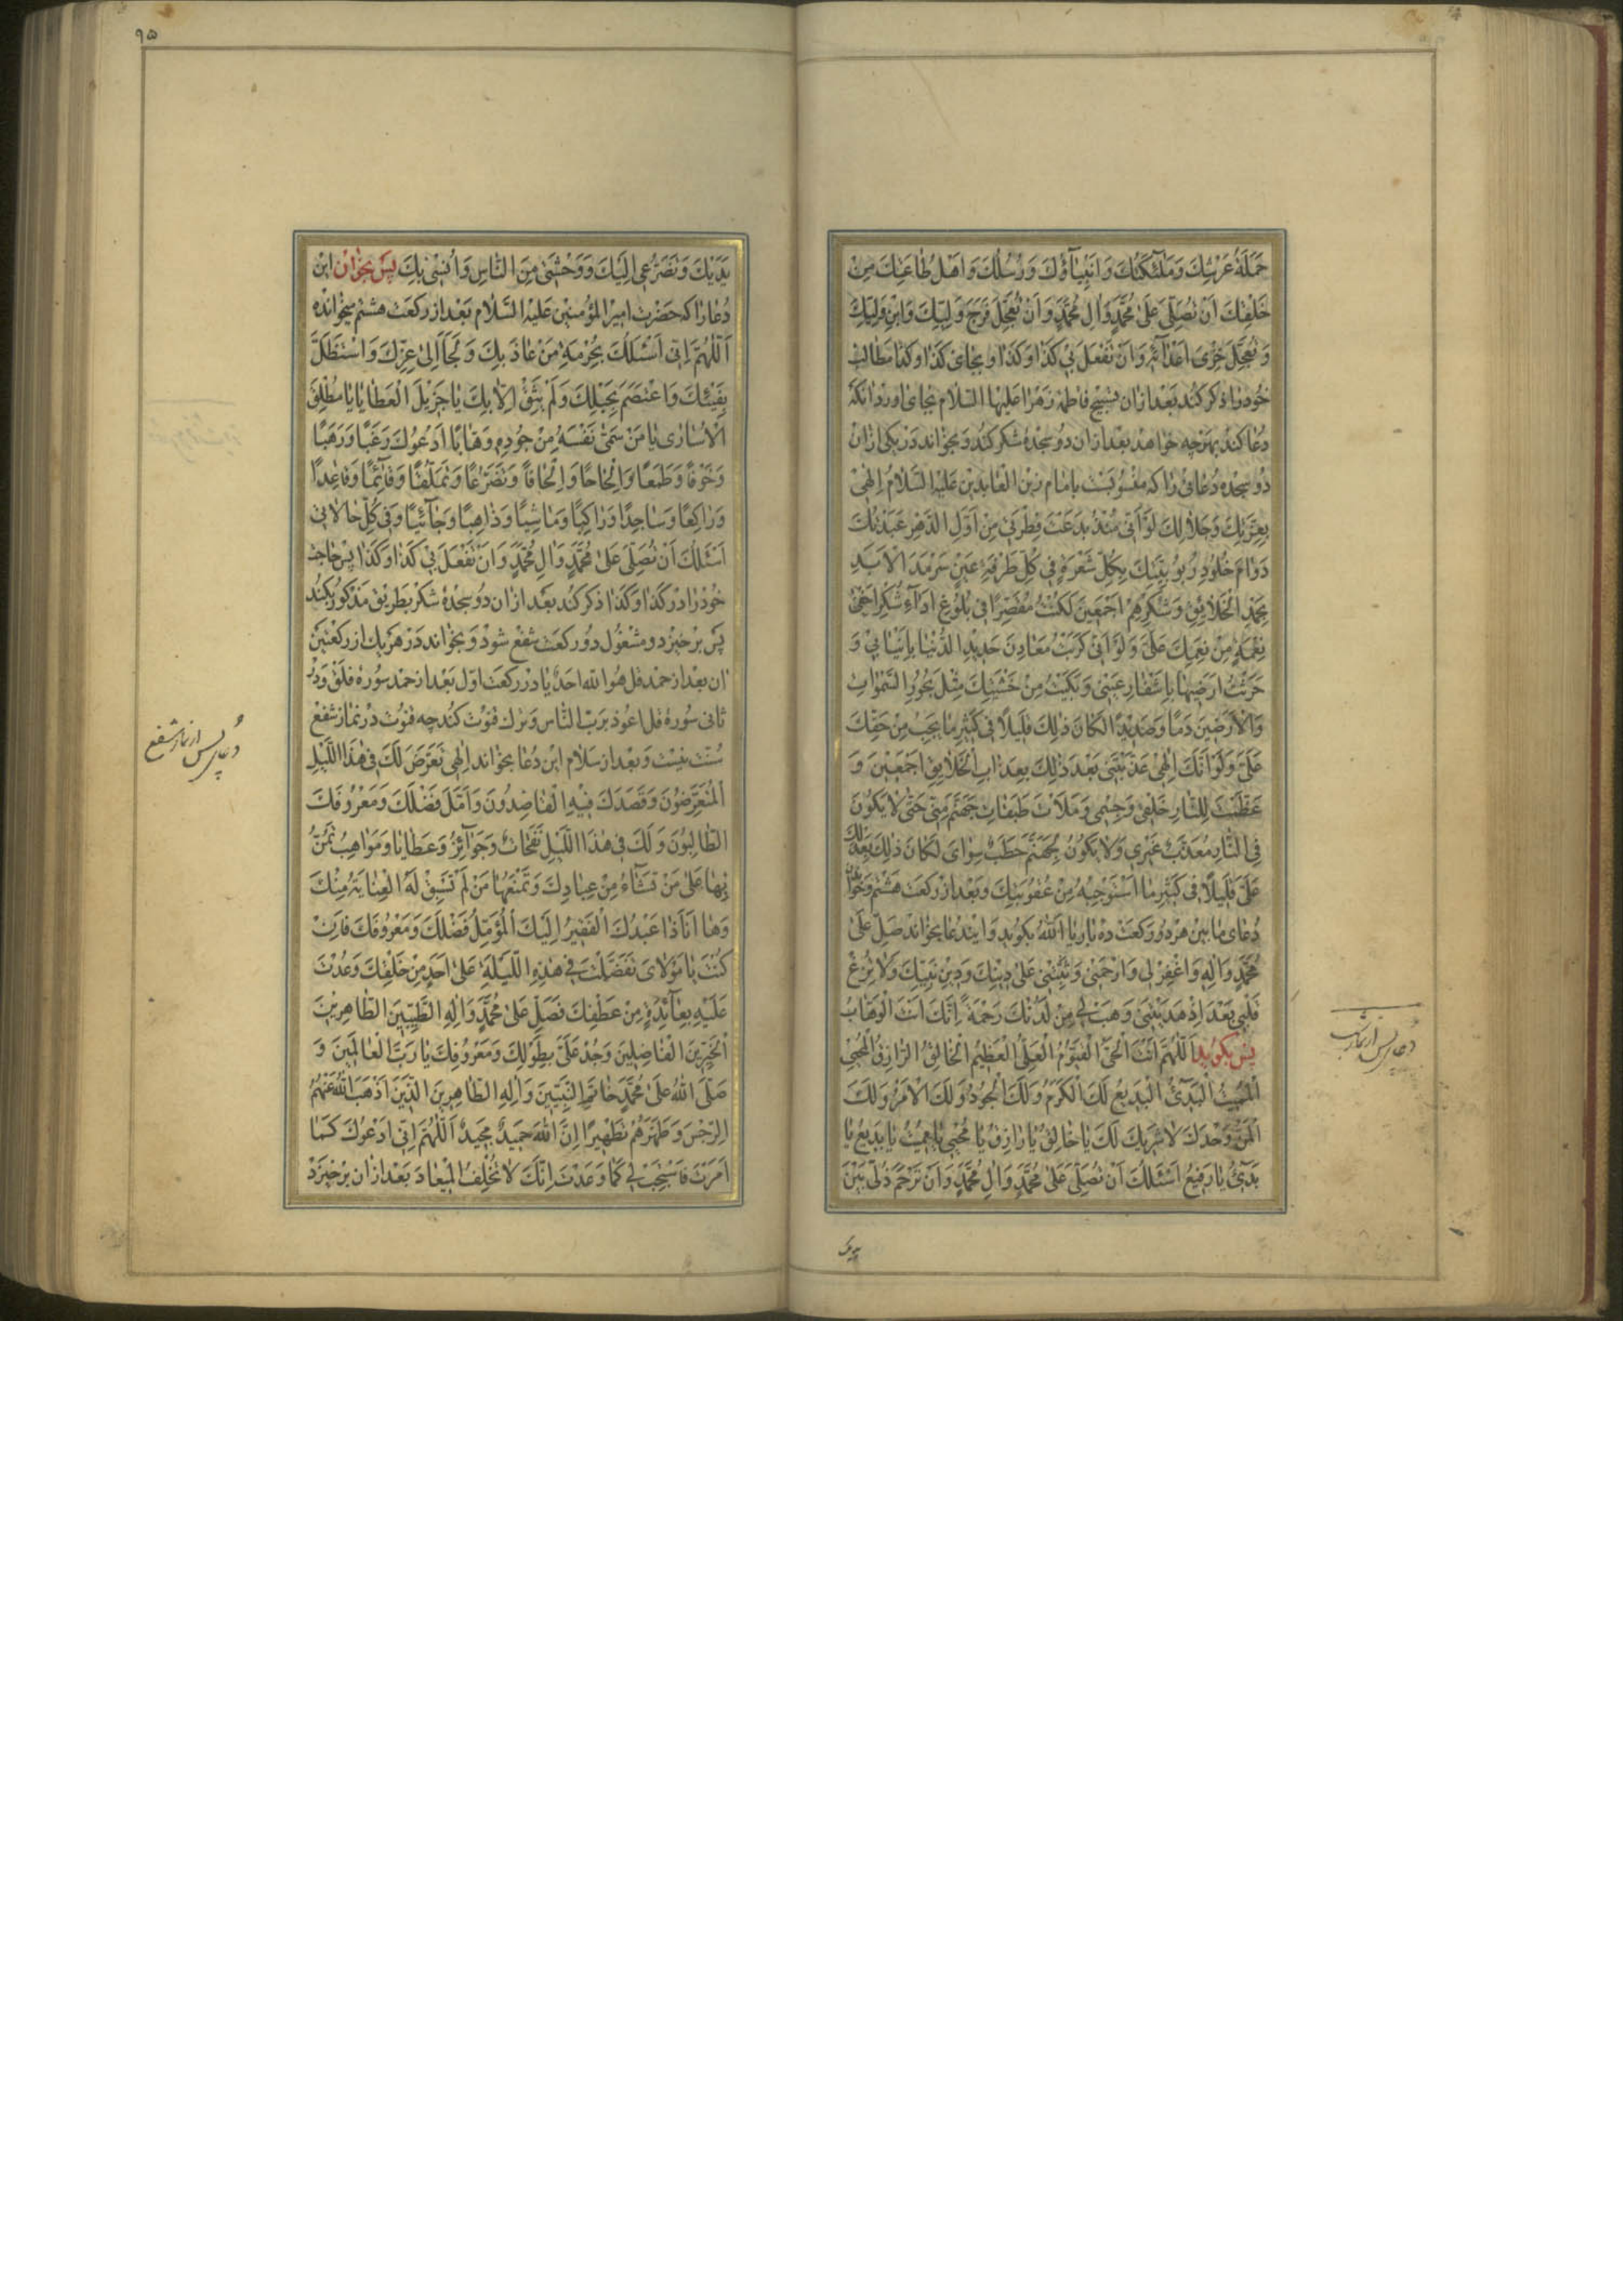 حَمَلَةُ عَرْشِكَ وَمَلٰٓئِكَتُكَ وَاَنْبِيٰٓاؤُكَ وَرُسُلُكَ وَاَهْلُ طٰاعَتِكَ مِنْ
خَلْقِكَ اَنْ تُصَلِّىَ عَلىٰ مُحَمَّدٍ وَاٰلِ مُحَمَّدٍ وَاَنْ تُعَجِّلَ فَرَجَ وَلِيِّكَ وَابْنِ وَلِيِّكَ
وَتُعَجِّلَ خِزْىَ اَعْدٰٓائِهِ وَاَنْ تَفْعَلَ بى كَذٰا وَكَذٰا و بجاى كذا وكذا مطالب
خود را ذكر كند بعد از ان تسبيح فاطمه زهرا عليها السلام بجاى اورد انكه
دعا كند بهرچه خواهد بعد از ان دو سجدهٔ شكر كند و بخواند در يكى از ان
دو سجده دعائى را كه منسوبست بامام زين العابدين عليه السلام اِلٰهى
بِعِزَّتِكَ وَجَلاٰلِكَ لَوْ اَنّى مُنْذُ بَدَعْتَ فِطْرَتى مِنْ اَوَّلِ الدَّهْرِ عَبَدْتُكَ
دَوٰامَ خُلُودِ رُبُوبِيَّتِكَ بِكُلِّ شَعْرَةٍ فى كُلِّ طَرْفَةِ عَيْنٍ سَرْمَدَ الْاَبَدِ
بِحَمْدِ الْخَلاٰئِقِ وَشُكْرِهِمْ اَجْمَعينَ لَكُنْتُ مُقَصِّرًا فى بُلُوغِ اَدٰٓاءِ شُكْرِ اَخْفىٰ
نِعْمَةٍ مِنْ نِعَمِكَ عَلَىَّ وَلَوْ اَنّى كَرَبْتُ مَعٰادِنَ حَديدِ الدُّنْيٰا بِاَنْيٰابى وَ
حَرَثْتُ اَرَضيهٰا بِاَشْفٰارِ عَيْنى وَبَكَيْتُ مِنْ خَشْيَتِكَ مِثْلَ بُحُورِ السَّمٰوٰاتِ
وَالْاَرَضينَ دَمًا وَصَديدًا لَكٰانَ ذٰلِكَ قَليلاً فى كَثيرِ مٰا يَجِبُ مِنْ حَقِّكَ
عَلَىَّ وَلَوْ اَنَّكَ اِلٰهى عَذَّبْتَنى بَعْدَ ذٰلِكَ بِعَذٰابِ الْخَلاٰئِقِ اَجْمَعينَ وَ
عَظَّمْتَ لِلنّٰارِ خَلْقى وَجِسْمى وَمَلَأْتَ طَبَقٰاتِ جَهَنَّمَ مِنّى حَتّٰى لاٰ يَكُونَ
فِى النّٰارِ مُعَذَّبٌ غَيْرى وَلاٰ يَكُونُ لِجَهَنَّمَ حَطَبٌ سِوٰاىَ لَكٰانَ ذٰلِكَ بِعَدْلِكَ
عَلَىَّ قَليلاً فى كَثيرِ مٰا اَسْتَوْجِبُهُ مِنْ عُقُوبَتِكَ و بعد از ركعت هشتم و خواندن
دعاى ما بين هر دو ركعت ده بار يٰا اَللّٰهُ بگويد و ايندعا بخواند صَلِّ عَلىٰ
مُحَمَّدٍ وَاٰلِهِ وَاغْفِرْ لى وَارْحَمْنى وَثَبِّتْنى عَلىٰ دينِكَ وَدينِ نَبِيِّكَ وَلاٰ تُزِغْ
قَلْبى بَعْدَ اِذْ هَدَيْتَنى وَهَبْ لى مِنْ لَدُنْكَ رَحْمَةً اِنَّكَ اَنْتَ الْوَهّٰابُ
پس بگويد اَللّٰهُمَّ اَنْتَ الْحَىُّ الْقَيُّومُ الْعَلِىُّ الْعَظيمُ الْخٰالِقُ الرّٰازِقُ الْمُحْيى
الْمُميتُ الْبَدىٓءُ الْبَديعُ لَكَ الْكَرَمُ وَلَكَ الْجُودُ وَلَكَ الْاَمْرُ وَلَكَ
الْمَنُّ وَحْدَكَ لاٰ شَريكَ لَكَ يٰا خٰالِقُ يٰا رٰازِقُ يٰا مُحْيى يٰا مُميتُ يٰا بَديعُ يٰا
بَدىٓءُ يٰا رَفيعُ اَسْئَلُكَ اَنْ تُصَلِّىَ عَلىٰ مُحَمَّدٍ وَاٰلِ مُحَمَّدٍ وَاَنْ تَرْحَمَ ذُلّى بَيْنَ
دعاى پس از نماز شب
يديك
٩٥
يَدَيْكَ وَتَضَرُّعى اِلَيْكَ وَوَحْشَتى مِنَ النّٰاسِ وَاُنْسى بِكَ پس بخوان اين
دعا را كه حضرت امير المؤمنين عليه السلام بعد از ركعت هشتم ميخوانده
اَللّٰهُمَّ اِنّى اَسْئَلُكَ بِحُرْمَةِ مَنْ عٰاذَ بِكَ وَلَجَأَ اِلىٰ عِزِّكَ وَاسْتَظَلَّ
بِفَيْئِكَ وَاعْتَصَمَ بِحَبْلِكَ وَلَمْ يَثِقْ اِلاّٰ بِكَ يٰا جَزيلَ الْعَطٰايٰا يٰا مُطْلِقَ
الْاُسٰارىٰ يٰا مَنْ سَمّٰى نَفْسَهُ مِنْ جُودِهِ وَهّٰابًا اَدْعُوكَ رَغَبًا وَرَهَبًا
وَخَوْفًا وَطَمَعًا وَاِلْحٰاحًا وَاِلْحٰافًا وَتَضَرُّعًا وَتَمَلُّقًا وَقٰٓائِمًا وَقٰاعِدًا
وَرٰاكِعًا وَسٰاجِدًا وَرٰاكِبًا وَمٰاشِيًا وَذٰاهِبًا وَجٰٓائِيًا وَفى كُلِّ حٰالاٰتى
اَسْئَلُكَ اَنْ تُصَلِّىَ عَلىٰ مُحَمَّدٍ وَاٰلِ مُحَمَّدٍ وَاَنْ تَفْعَلَ بى كَذٰا وَكَذٰا پس حاجت
خود را در كذا وكذا ذكر كند بعد از ان دو سجدهٔ شكر بطريق مذكور بكند
پس برخيزد و مشغول دو ركعت شفع شود و بخواند در هر يك از ركعتين
ان بعد از حمد قل هو الله احد يا در ركعت اول بعد از حمد سورهٔ فلق و در
ثانى سورهٔ قل اعوذ برب الناس و ترك قنوت كند چه قنوت در نماز شفع
سنت نيست و بعد از سلام اين دعا بخواند اِلٰهى تَعَرَّضَ لَكَ فى هٰذَا اللَّيْلِ
الْمُتَعَرِّضُونَ وَقَصَدَكَ فيهِ الْقٰاصِدُونَ وَاَمَّلَ فَضْلَكَ وَمَعْرُوفَكَ
الطّٰالِبُونَ وَلَكَ فى هٰذَا اللَّيْلِ نَفَحٰاتٌ وَجَوٰٓائِزُ وَعَطٰايٰا وَمَوٰاهِبُ تَمُنُّ
بِهٰا عَلىٰ مَنْ تَشٰٓاءُ مِنْ عِبٰادِكَ وَتَمْنَعُهٰا مَنْ لَمْ تَسْبِقْ لَهُ الْعِنٰايَةُ مِنْكَ
وَهٰا اَنَا ذٰا عَبْدُكَ الْفَقيرُ اِلَيْكَ الْمُؤَمِّلُ فَضْلَكَ وَمَعْرُوفَكَ فَاِنْ
كُنْتَ يٰا مَوْلاٰىَ تَفَضَّلْتَ فى هٰذِهِ اللَّيْلَةِ عَلىٰ اَحَدٍ مِنْ خَلْقِكَ وَعُدْتَ
عَلَيْهِ بِعٰٓائِدَةٍ مِنْ عَطْفِكَ فَصَلِّ عَلىٰ مُحَمَّدٍ وَاٰلِهِ الطَّيِّبينَ الطّٰاهِرينَ
الْخَيِّرينَ الْفٰاضِلينَ وَجُدْ عَلَىَّ بِطَوْلِكَ وَمَعْرُوفِكَ يٰا رَبَّ الْعٰالَمينَ وَ
صَلَّى اللّٰهُ عَلىٰ مُحَمَّدٍ خٰاتَمِ النَّبِيّينَ وَاٰلِهِ الطّٰاهِرينَ الَّذينَ اَذْهَبَ اللّٰهُ عَنْهُمُ
الرِّجْسَ وَطَهَّرَهُمْ تَطْهيرًا اِنَّ اللّٰهَ حَميدٌ مَجيدٌ اَللّٰهُمَّ اِنّى اَدْعُوكَ كَمٰا
اَمَرْتَ فَاسْتَجِبْ لى كَمٰا وَعَدْتَ اِنَّكَ لاٰ تُخْلِفُ الْميعٰادَ بعد از ان برخيزد
دعاى پس از نماز شفع